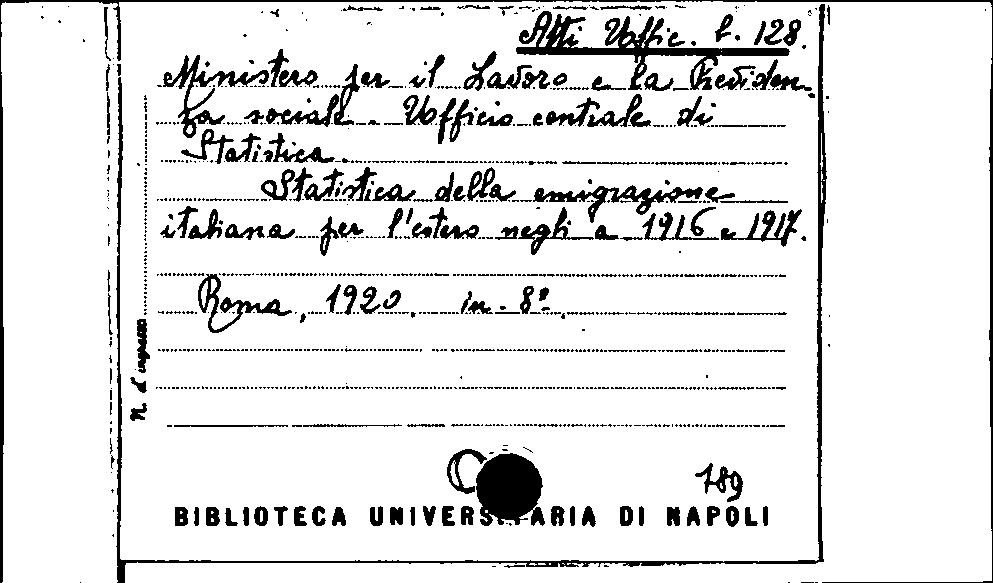 Atti Uffic. b. 128.
Ministero per il Lavoro e la Previden-
za sociale. Ufficio centrale di
Statistica.
Statistica della emigrazione
italiana per l'estero negli a. 1916 e 1917.
Roma, 1920. in-8º.
N. d'ingresso
789
BIBLIOTECA UNIVERSITARIA DI NAPOLI